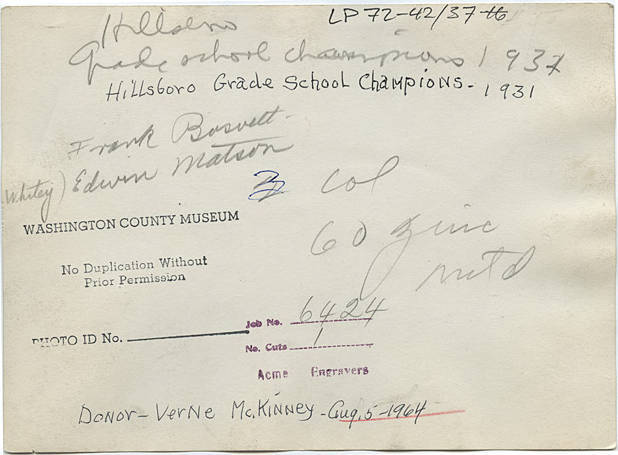 LP72-42/37-16
Hillsboro
Grade school champions 1931
Hillsboro Grade School Champions - 1931
Frank Bosvelt
Whitey) Edwin Matson
3 col
60 zinc
mtd
WASHINGTON COUNTY MUSEUM
No Duplication Without
Prior Permission
PHOTO ID No.
Job No. 6424
No. Cuts 1
Acme Engravers
Donor - Verne McKinney - Aug. 5 - 1964